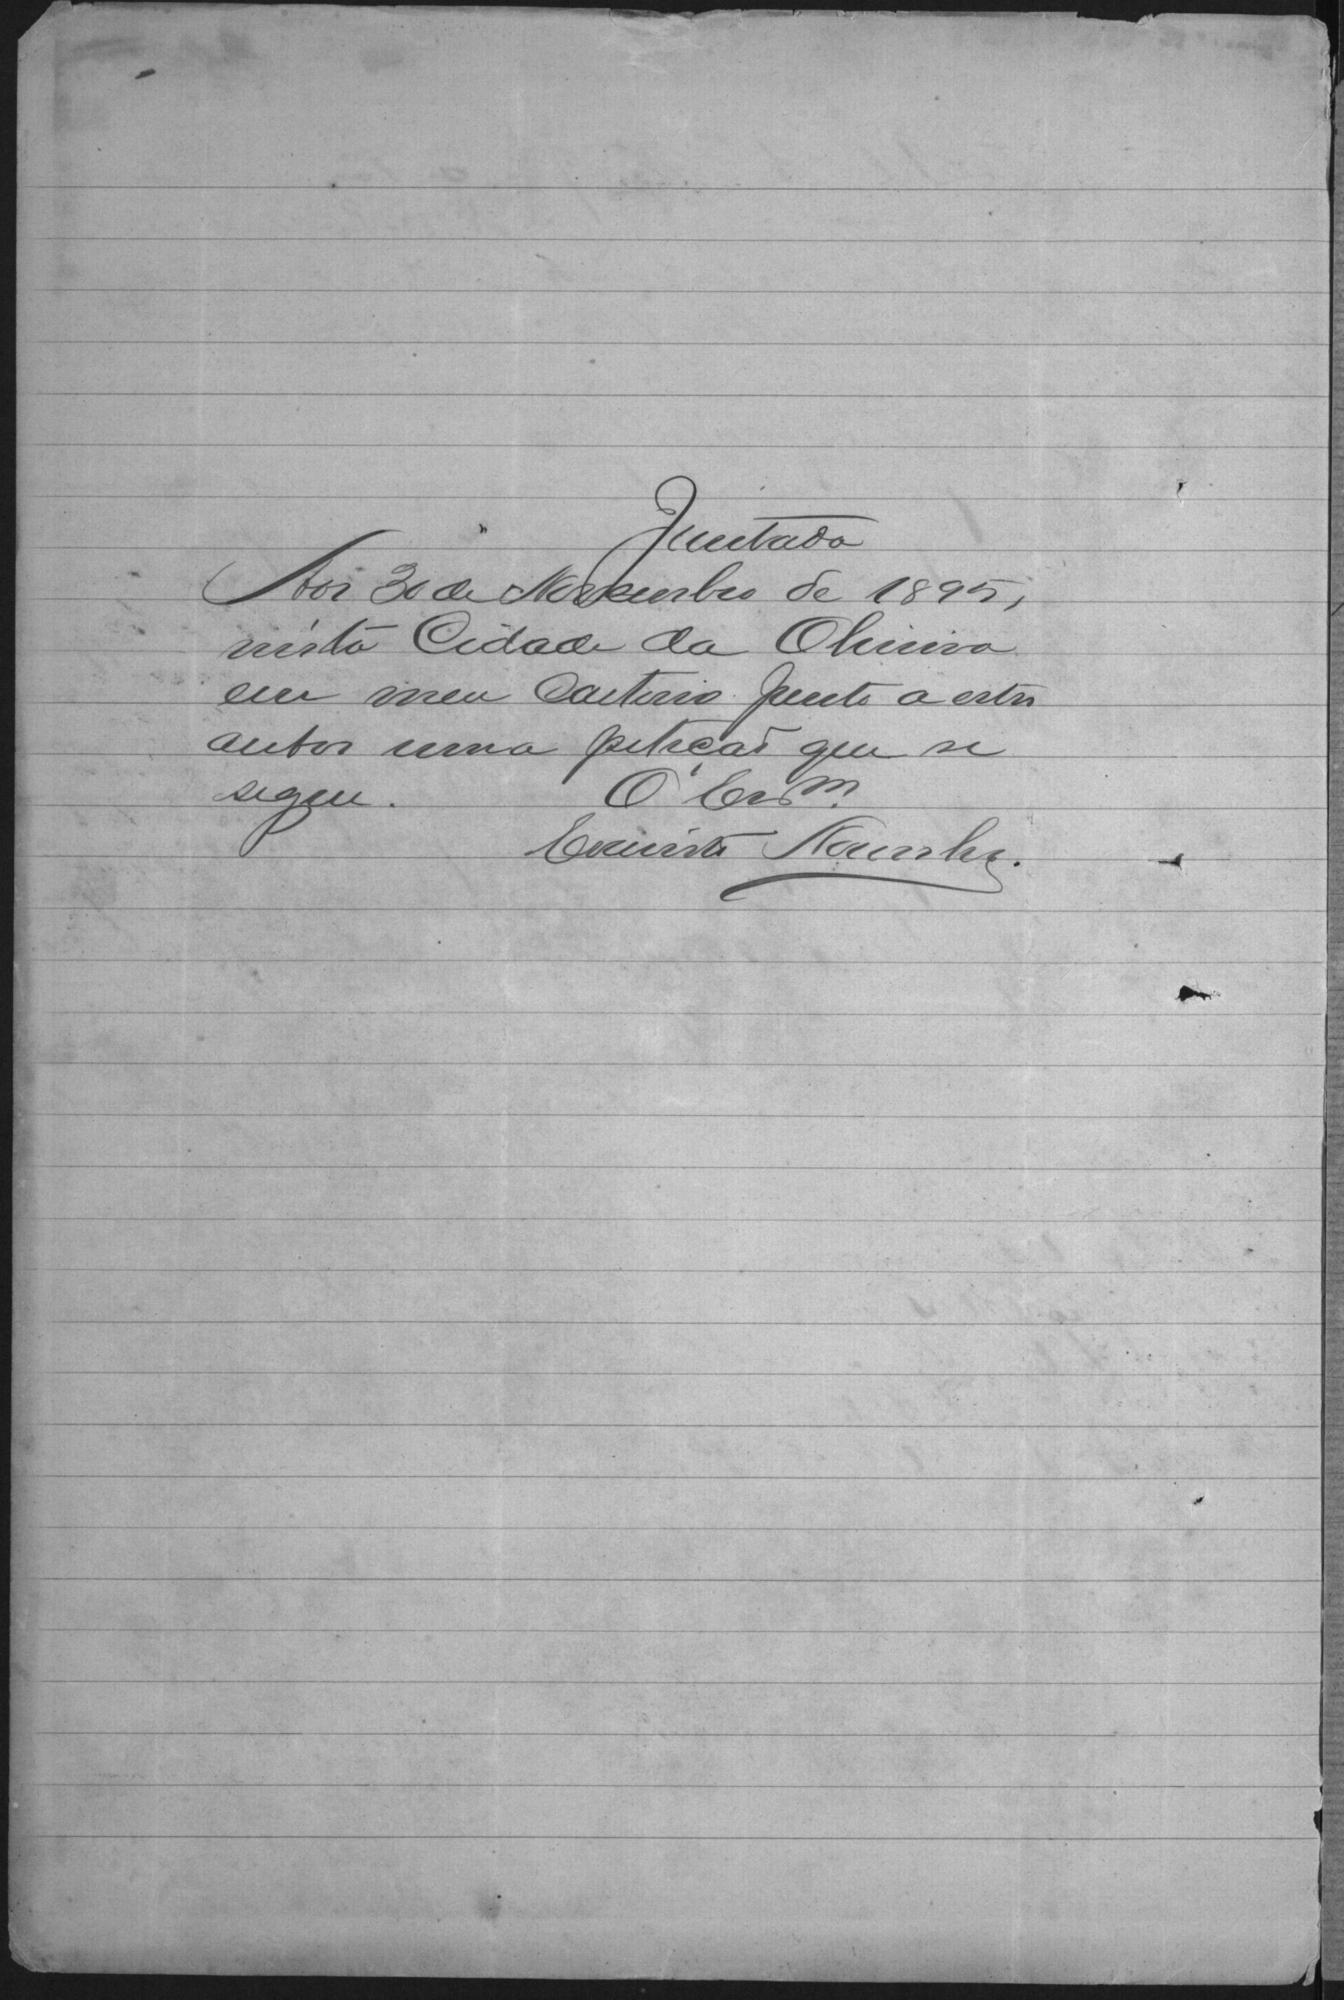 Juntada
Aos 30 de Novembro de 1895,
nesta Cidade da Oliveira
em meu Cartorio junto a estes
autos uma petiçaõ que se
segue. O Escr.m
Evaristo